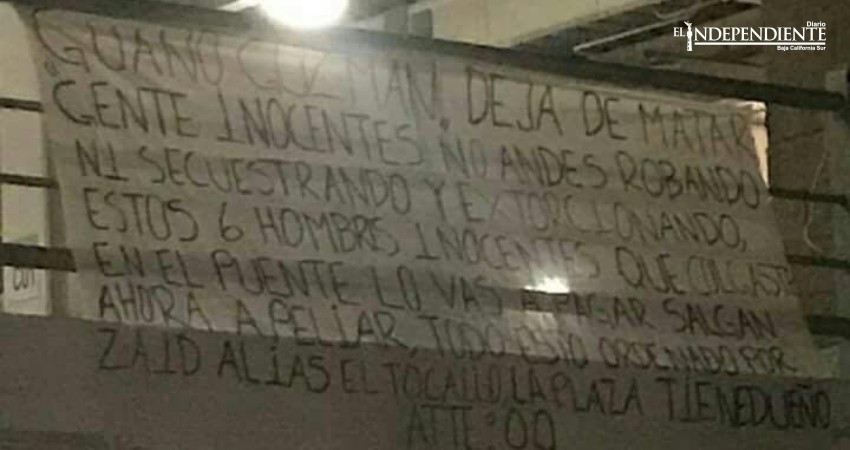 Diario
EL INDEPENDIENTE
Baja California Sur
GUANO GUZMAN, DEJA DE MATAR
GENTE INOCENTES, NO ANDES ROBANDO
NI SECUESTRANDO Y EXTORCIONANDO,
ESTOS 6 HOMBRES INOCENTES QUE COLGASTE
EN EL PUENTE LO VAS A PAGAR SALGAN
AHORA A PELIAR, TODO ESTO ORDENADO POR
ZAID ALIAS EL TOCALLO LA PLAZA TIENE DUEÑO
ATTE: OO